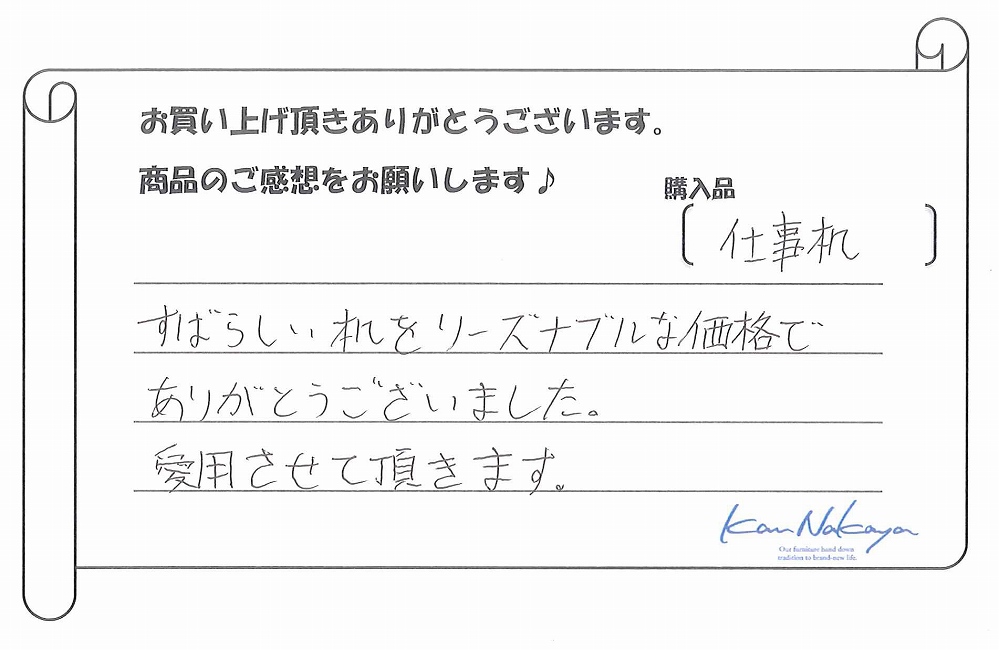 お買い上げ頂きありがとうございます。
商品のご感想をお願いします♪
購入品
仕事机
すばらしい机をリーズナブルな価格で
ありがとうございました。
愛用させて頂きます。
Kan Nakaya
Our furniture hand down
tradition to brand-new life.